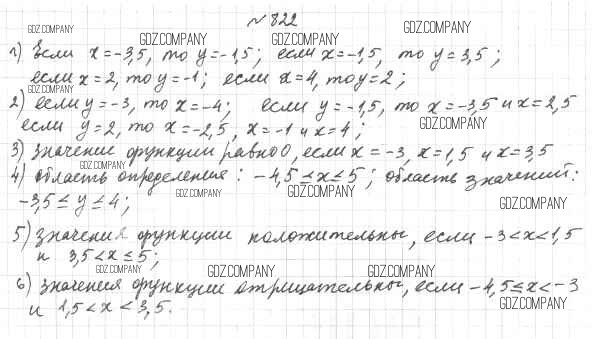 № 822
GDZ.COMPANY
GDZ.COMPANY GDZ.COMPANY GDZ.COMPANY
1) Если x=-3,5, то y=-1,5; если x=-1,5, то y=3,5;
если x=2, то y=-1; если x=4, то y=2;
GDZ.COMPANY
2) если y=-3, то x=-4; если y=-1,5, то x=-3,5 и x=2,5
GDZ.COMPANY
если y=2, то x=-2,5, x=-1 и x=4;
3) значение функции равно 0, если x=-3, x=1,5 и x=3,5
GDZ.COMPANY
4) область определения: -4,5≤x≤5; область значений:
GDZ.COMPANY GDZ.COMPANY GDZ.COMPANY
-3,5≤y≤4;
5) значения функции положительны, если -3<x<1,5
и 3,5<x≤5;
GDZ.COMPANY GDZ.COMPANY GDZ.COMPANY
6) значения функции отрицательны, если -4,5≤x<-3
GDZ.COMPANY
и 1,5<x<3,5.